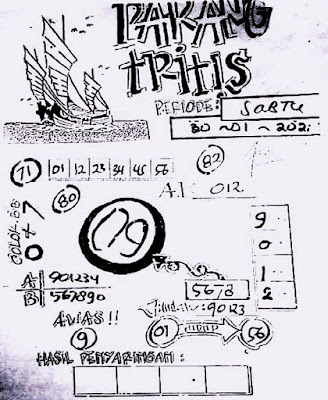 PARANG
TRITIS
PERIODE: SABTU
30 ~ 01 ~ 202
71 01 12 23 34 45 56 82
A.I 012
80
COLOK.BB
047
79
9
0
1
2
A 901234
B 567890
5678
Jumlah: 90123
AWAS!!
9
01 HIDUP 56
HASIL PENYARINGAN: